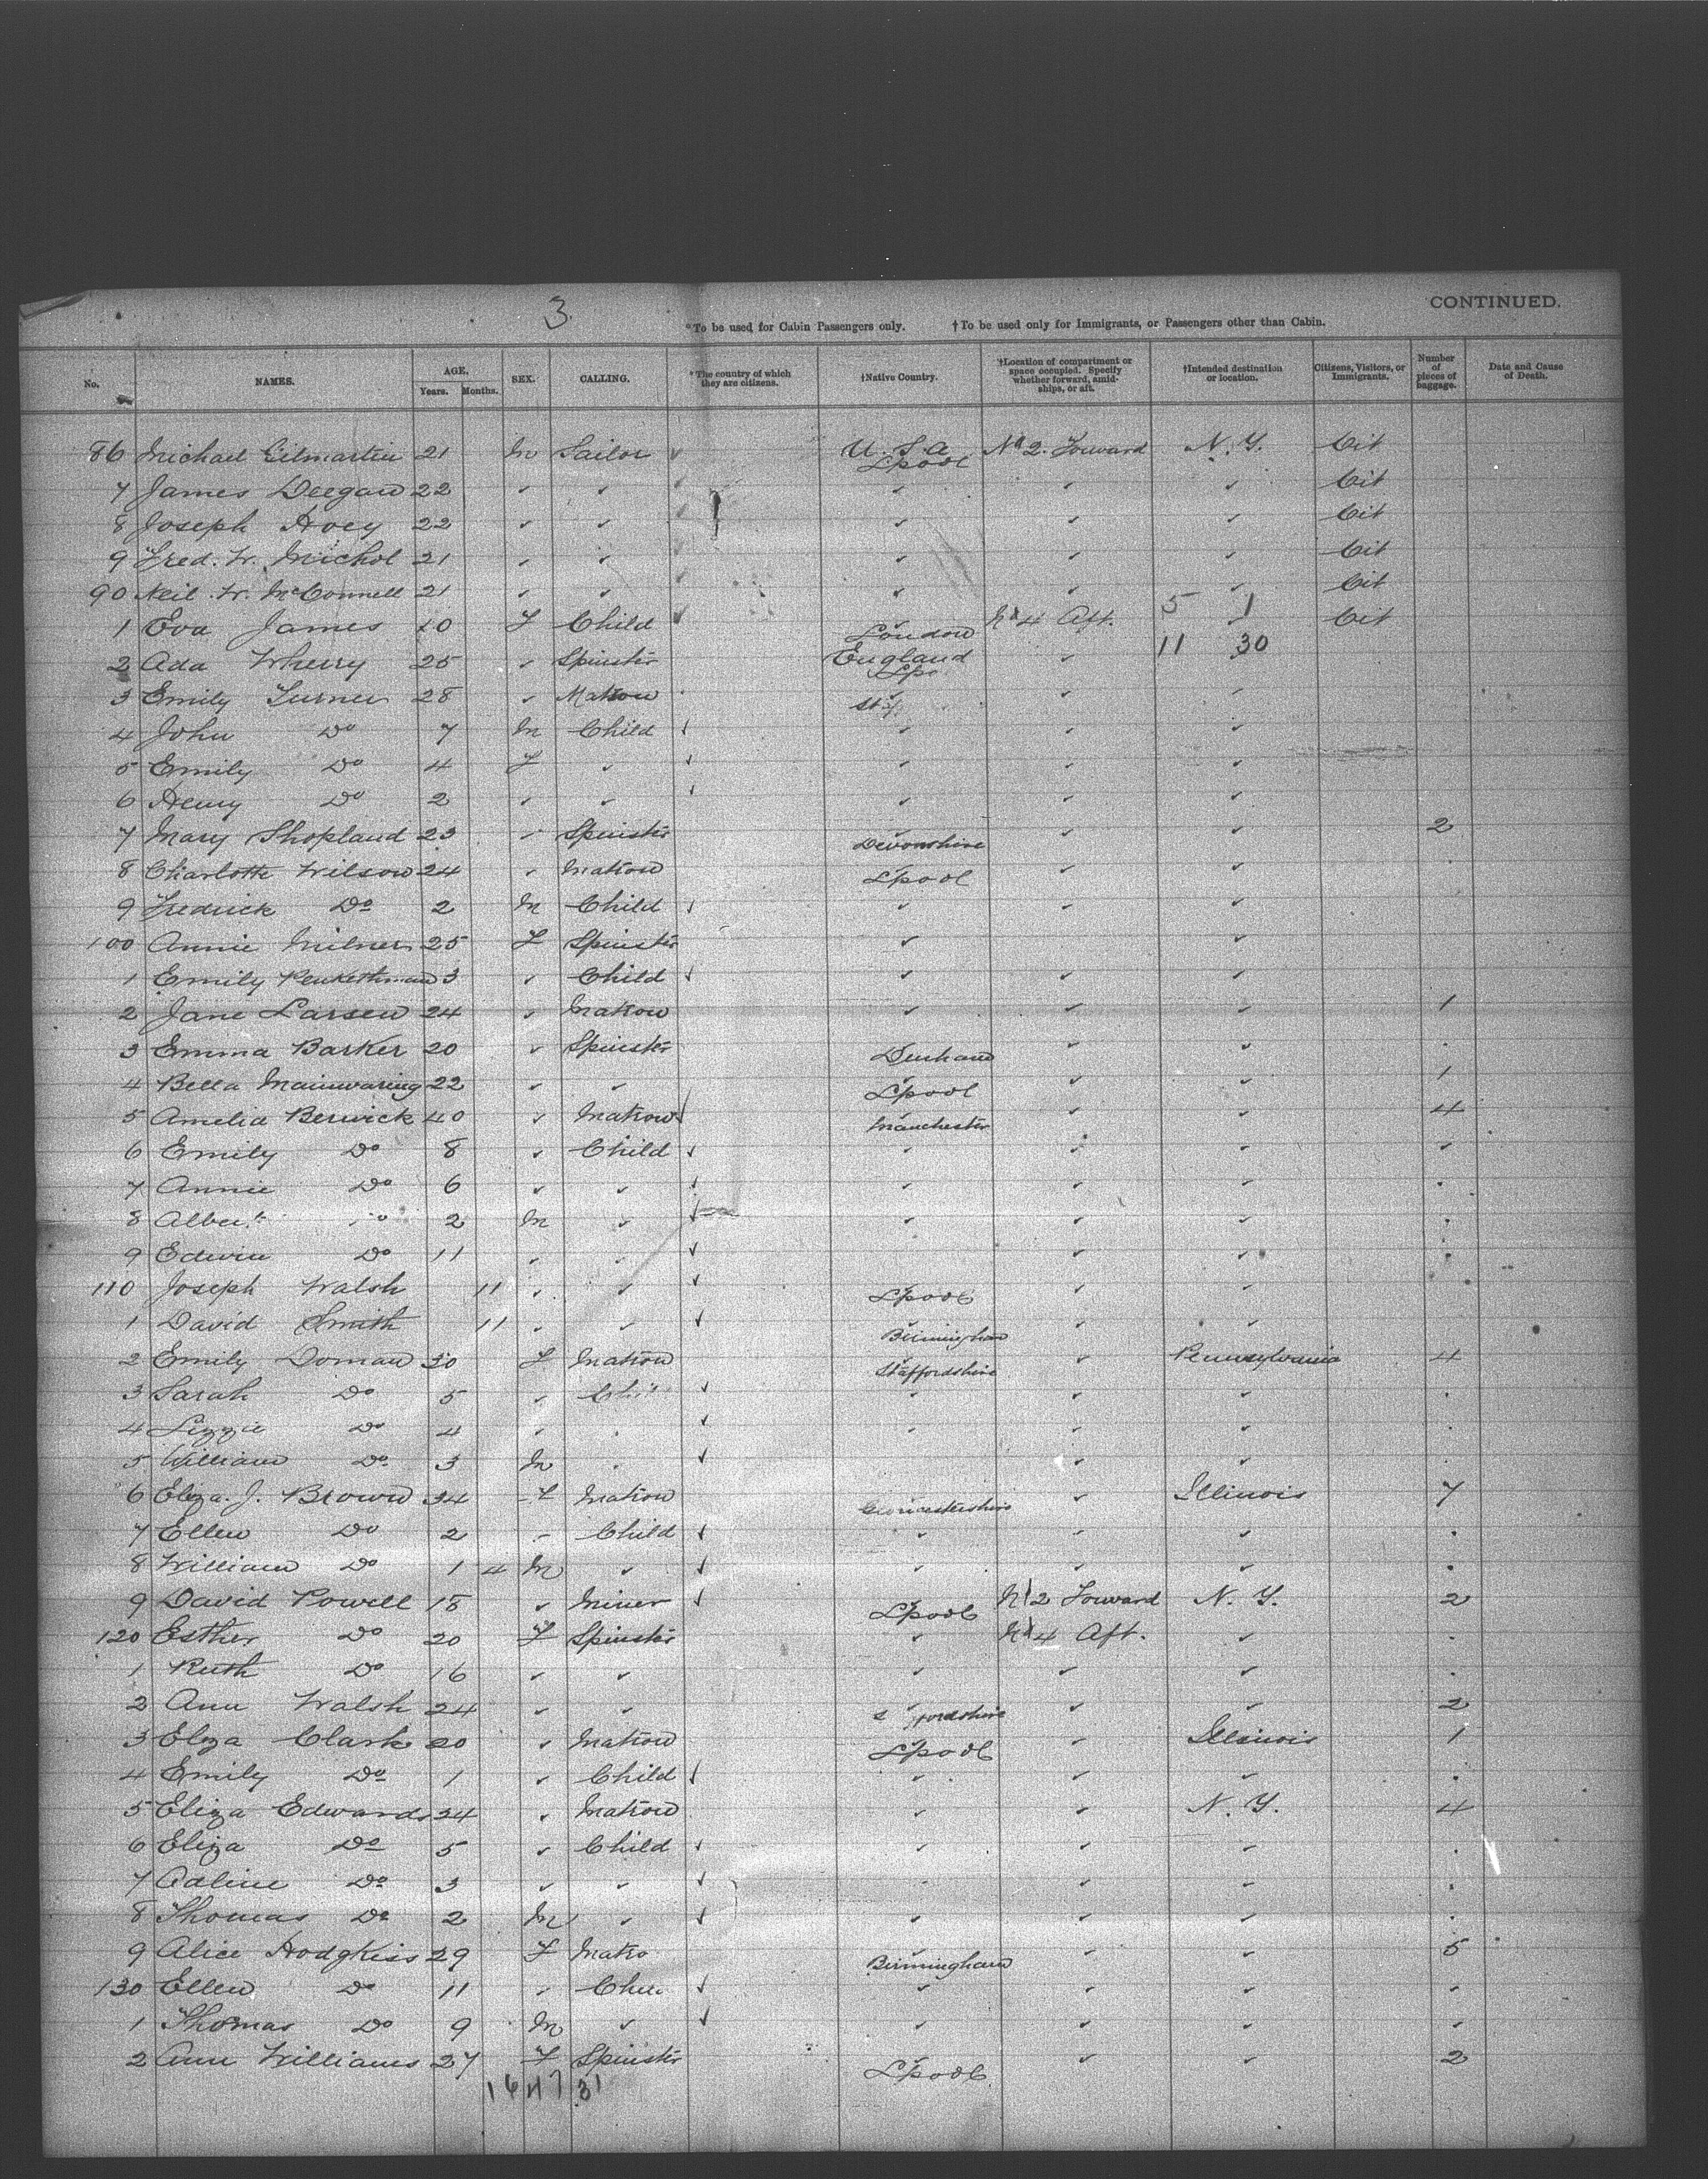 3
CONTINUED.
*To be used for Cabin Passengers only. †To be used only for Immigrants, or Passengers other than Cabin.
No. NAMES. AGE. Years. Months. SEX. CALLING. *The country of which they are citizens. †Native Country. †Location of compartment or space occupied. Specify whether forward, amidships, or aft. †Intended destination or location. Citizens, Visitors, or Immigrants. Number of pieces of baggage. Date and Cause of Death.
86 Michael Gilmartin 21 M Sailor ✓ U.S.A. Lpool No 2. Forward N.Y. Cit
7 James Deegan 22 " " ✓ " " " Cit
8 Joseph Hoey 22 " " ✓ " " " Cit
9 Fred. W. Nichol 21 " " ✓ " " " Cit
90 Neil. W. McConnell 21 " " ✓ " " " Cit
1 Eva James 10 F Child ✓ " London No 4 Aft. 5 1 " Cit
2 Ada Wherry 25 " Spinster England Lpo " 11 30
3 Emily Turner 28 " Matron " " "
4 John Do 7 M Child ✓ " " "
5 Emily Do 4 F " ✓ " " "
6 Henry Do 2 " " ✓ " " "
7 Mary Shopland 23 " Spinster " Devonshire " " 2
8 Charlotte Wilson 24 " Matron Lpool " "
9 Fredrick Do 2 M Child ✓ " " "
100 Annie Milner 25 F Spinster " "
1 Emily Penkethman 3 " Child ✓ " " "
2 Jane Larsen 24 " Matron " " " 1
3 Emma Barker 20 " Spinster Durham " "
4 Bella Mainwaring 22 " " " Lpool " " 1
5 Amelia Berwick 40 " Matron ✓ " Manchester " " 4
6 Emily Do 8 " Child ✓ " " " "
7 Annie Do 6 " " ✓ " " " "
8 Albert Do 2 M " ✓ " " " "
9 Edwin Do 11 " " ✓ " " "
110 Joseph Walsh 11 " " ✓ Lpool " "
1 David Smith 11 " " ✓ " Birmingham " "
2 Emily Doman 30 F Matron " Staffordshire " Pennsylvania 4
3 Sarah Do 5 " Chi ✓ " " " "
4 Lizzie Do 4 " " ✓ " " " "
5 William Do 3 M " ✓ " " "
6 Eliza. J. Brown 34 F Matron Gloucestershire " Illinois 7
7 Ellen Do 2 " Child ✓ " " " "
8 William Do 1 4 M " ✓ " " " "
9 David Powell 18 " Miner ✓ " Lpool No 2 Forward N.Y. 2
120 Esther Do 20 F Spinster " No 4 Aft. " "
1 Ruth Do 16 " " " " " "
2 Ann Walsh 24 " " " " " 2
3 Eliza Clark 20 " Matron Lpool " Illinois 1
4 Emily Do 1 " Child ✓ " " " "
5 Eliza Edwards 24 " Matron " " N.Y. 4
6 Eliza Do 5 " Child ✓ " " " "
7 Adline Do 3 " " ✓ " " " "
8 Thomas Do 2 M " ✓ " " " "
9 Alice Hodgkiss 29 F Matro " Birmingham " " 5
130 Ellen Do 11 " Chil ✓ " " " "
1 Thomas Do 9 M " ✓ " " " "
2 Ann Williams 27 F Spinster " Lpool " " 2